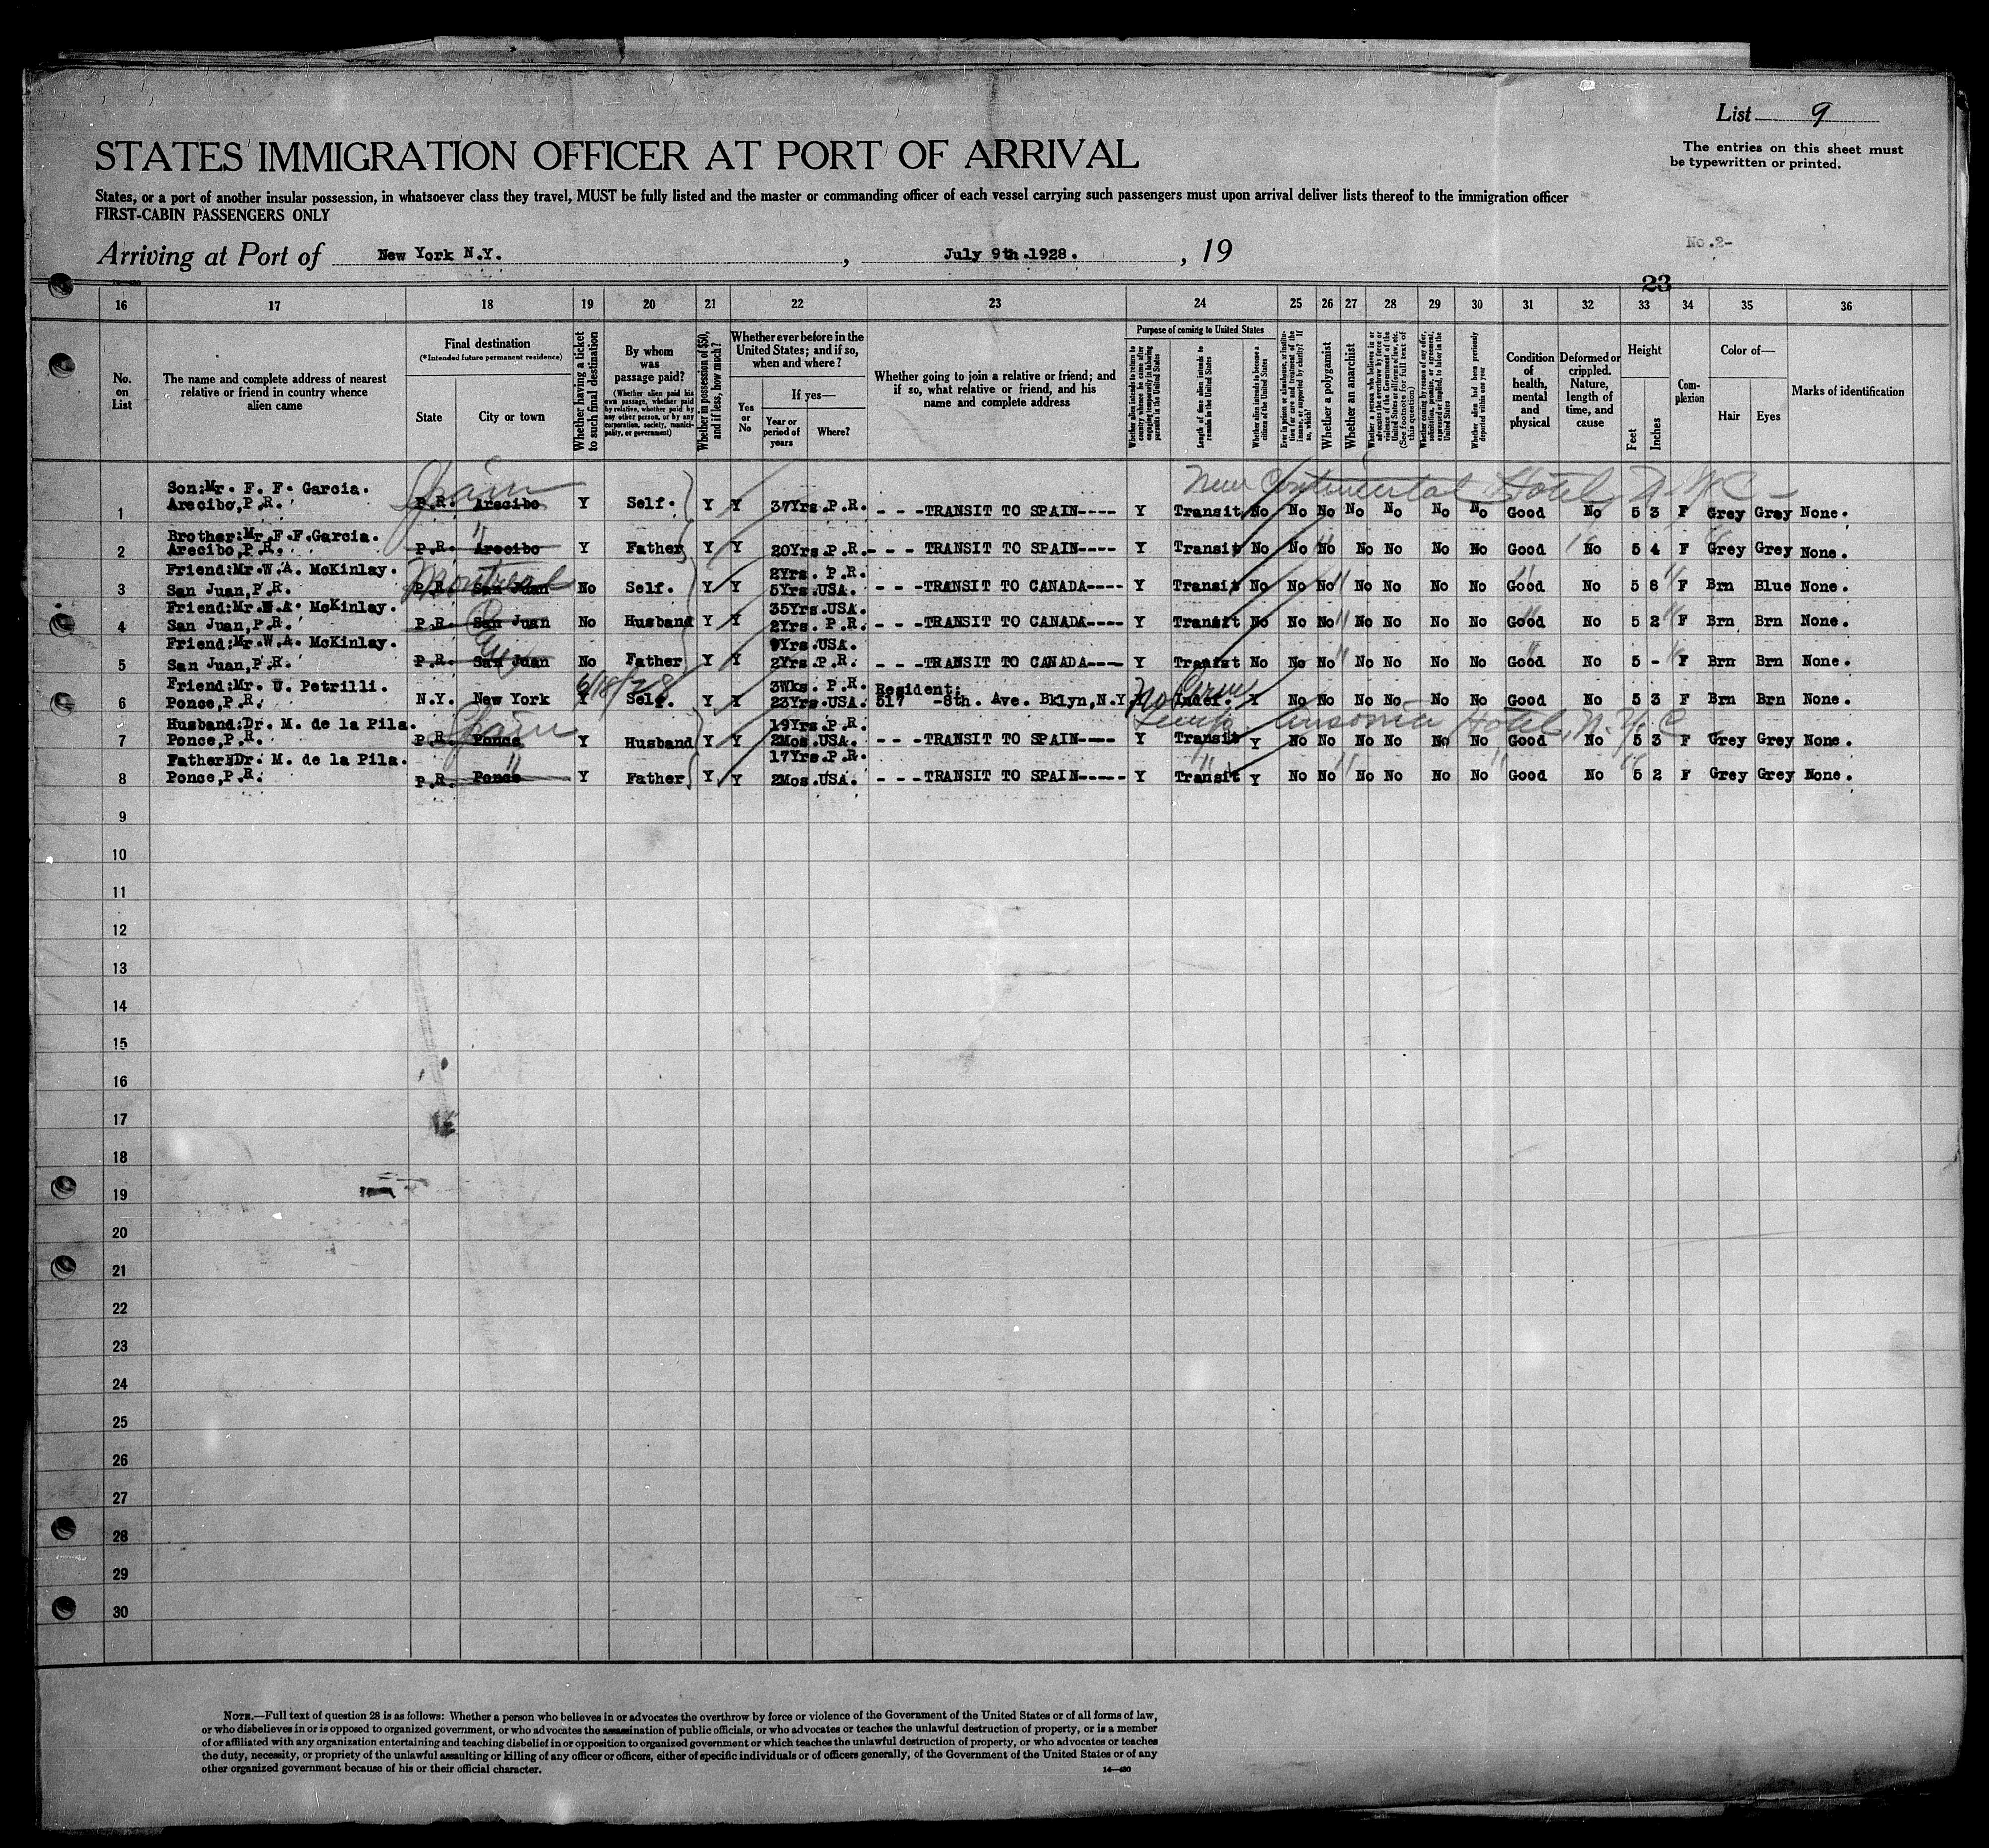 List 9
STATES IMMIGRATION OFFICER AT PORT OF ARRIVAL
The entries on this sheet must
be typewritten or printed.
States, or a port of another insular possession, in whatsoever class they travel, MUST be fully listed and the master or commanding officer of each vessel carrying such passengers must upon arrival deliver lists thereof to the immigration officer
FIRST-CABIN PASSENGERS ONLY
No.2-
Arriving at Port of New York N.Y. , July 9th.1928. , 19
23
16 17 18 19 20 21 22 23 24 25 26 27 28 29 30 31 32 33 34 35 36
No. on List
The name and complete address of nearest relative or friend in country whence alien came
Final destination
(*Intended future permanent residence)
State
City or town
Whether having a ticket to such final destination
By whom was passage paid?
(Whether alien paid his own passage, whether paid by relative, whether paid by any other person, or by any corporation, society, municipality, or government)
Whether in possession of $50, and if less, how much?
Whether ever before in the United States; and if so, when and where?
Yes or No
If yes—
Year or period of years
Where?
Whether going to join a relative or friend; and if so, what relative or friend, and his name and complete address
Purpose of coming to United States
Whether alien intends to return to country whence he came after engaging temporarily in laboring pursuits in the United States
Length of time alien intends to remain in the United States
Whether alien intends to become a citizen of the United States
Ever in prison or almshouse, or institution for care and treatment of the insane, or supported by charity? If so, which?
Whether a polygamist
Whether an anarchist
Whether a person who believes in or advocates the overthrow by force or violence of the Government of the United States or all forms of law, etc. (See footnote for full text of this question)
Whether coming by reason of any offer, solicitation, promise, or agreement, expressed or implied, to labor in the United States
Whether alien had been previously deported within one year
Condition of health, mental and physical
Deformed or crippled. Nature, length of time, and cause
Height
Feet
Inches
Complexion
Color of—
Hair
Eyes
Marks of identification
Spain New Continental Hotel N.Y.C.
Son:Mr. F. F. Garcia.
1 Arecibo,P.R. P.R. Arecibo Y Self. Y Y 37Yrs.P.R. - - -TRANSIT TO SPAIN---- Y Transit No No No No No No No Good No 5 3 F Grey Grey None.
Brother:Mr.F.F.Garcia.
2 Arecibo,P.R. P.R. Arecibo Y Father Y Y 20Yrs.P.R. - - - TRANSIT TO SPAIN---- Y Transit No No No No No No No Good No 5 4 F Grey Grey None.
Friend:Mr.W.A. McKinlay. Montreal 2Yrs. P.R.
3 San Juan,P.R. P.R. San Juan No Self. Y Y 5Yrs.USA. - - -TRANSIT TO CANADA---- Y Transit No No No No No No No Good No 5 8 F Brn Blue None.
Friend:Mr.W.A. McKinlay. 35Yrs.USA.
4 San Juan,P.R. P.R. San Juan No Husband Y Y 2Yrs. P.R. - - -TRANSIT TO CANADA---- Y Transit No No No No No No No Good No 5 2 F Brn Brn None.
Friend:Mr.W.A. McKinlay. 9Yrs.USA.
5 San Juan,P.R. P.R. San Juan No Father Y Y 2Yrs.P.R. - - -TRANSIT TO CANADA---- Y Tranist No No No No No No No Good No 5 - F Brn Brn None.
Friend:Mr. U. Petrilli. 6/18/28 3Wks. P.R. Resident:
6 Ponce,P.R. N.Y. New York Y Self. Y Y 23Yrs.USA. 517 -8th. Ave. Bklyn,N.Y. No Indef. Y No No No No No No Good No 5 3 F Brn Brn None.
Husband:Dr. M. de la Pila. Spain 19Yrs.P.R. Ansonia Hotel, N.Y.C.
7 Ponce,P.R. P.R. Ponce Y Husband Y Y 2Mos.USA. - - -TRANSIT TO SPAIN---- Y Transit Y No No No No No No Good No 5 3 F Grey Grey None.
Father:Dr. M. de la Pila. 17Yrs.P.R.
8 Ponce,P.R. P.R. Ponce Y Father Y Y 2Mos.USA. - - -TRANSIT TO SPAIN----- Y Transit Y No No No No No No Good No 5 2 F Grey Grey None.
9
10
11
12
13
14
15
16
17
18
19
20
21
22
23
24
25
26
27
28
29
30
NOTE.—Full text of question 28 is as follows: Whether a person who believes in or advocates the overthrow by force or violence of the Government of the United States or of all forms of law,
or who disbelieves in or is opposed to organized government, or who advocates the assassination of public officials, or who advocates or teaches the unlawful destruction of property, or is a member
of or affiliated with any organization entertaining and teaching disbelief in or opposition to organized government or which teaches the unlawful destruction of property, or who advocates or teaches
the duty, necessity, or propriety of the unlawful assaulting or killing of any officer or officers, either of specific individuals or of officers generally, of the Government of the United States or of any
other organized government because of his or their official character.
14—430